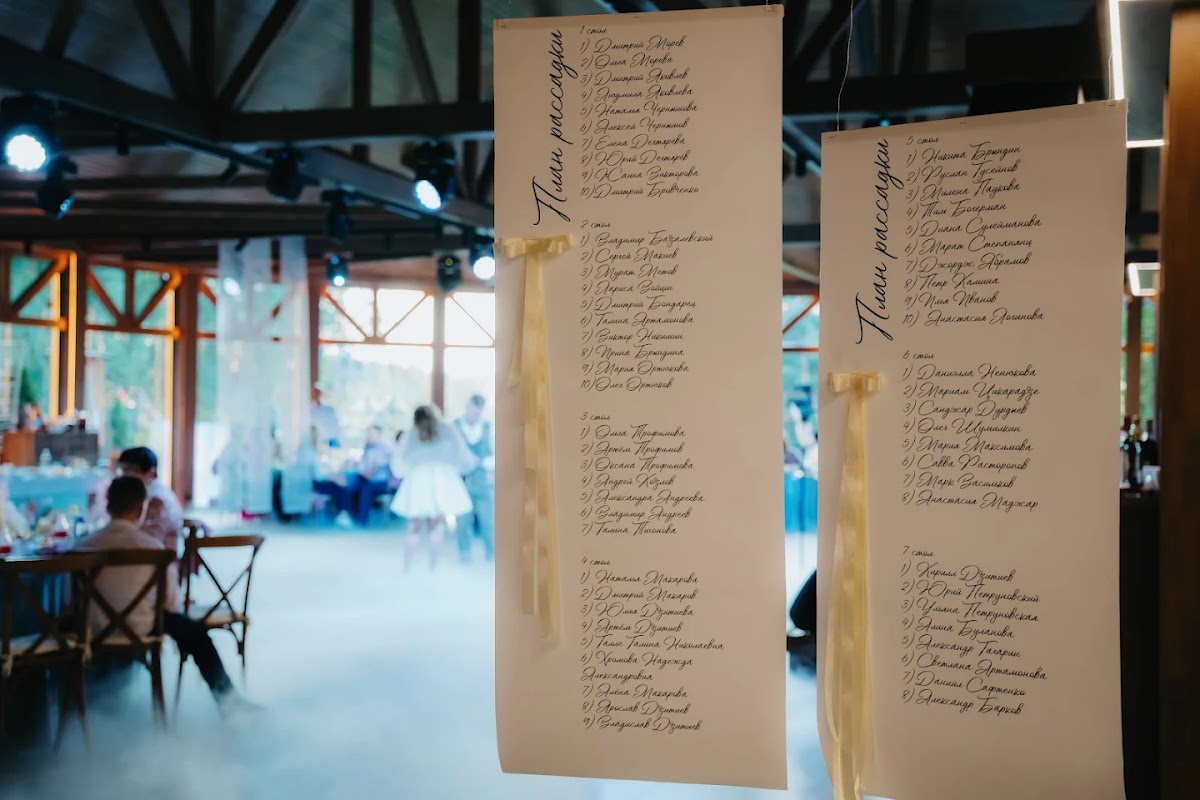 План рассадки
1 стол
1) Дмитрий Морев
2) Ольга Морева
3) Дмитрий Яковлев
4) Людмила Яковлева
5) Наталья Черншова
6) Алексей Черншов
7) Елена Дегтарева
8) Юрий Дегтарев
9) Жанна Викторова
10) Дмитрий Бровченко
2 стол
1) Владимир Базалевский
2) Сергей Макиев
3) Мурат Метов
4) Лариса Войциг
5) Дмитрий Бондарец
6) Галина Артамонова
7) Виктор Никишин
8) Ирина Брындина
9) Мария Ортюкова
10) Олег Ортюков
3 стол
1) Ольга Трофимова
2) Артём Трофимов
3) Оксана Трофимова
4) Андрей Козлов
5) Александра Андреева
6) Владимир Андреев
7) Галина Тионова
4 стол
1) Наталья Макарова
2) Дмитрий Макаров
3) Юлия Дзитиева
4) Артём Дзитиев
5) Галле Галина Николаевна
6) Хромова Надежда
Александровна
7) Алёна Макарова
8) Ярослав Дзитиев
9) Владислав Дзитиев
План рассадки
5 стол
1) Никита Брындин
2) Руслан Гусейнов
3) Милена Паукова
4) Тим Богерман
5) Диана Сулейманова
6) Марат Степананц
7) Джордж Абрамов
8) Петр Калина
9) Илья Иванов
10) Анастасия Лошнова
6 стол
1) Даниэлла Ненюкова
2) Мариам Цикарадзе
3) Санджар Дурджев
4) Олег Шумилкин
5) Мария Максимова
6) Савва Расторопов
7) Марк Васильков
8) Анастасия Маджар
7 стол
1) Кирилл Дзитиев
2) Юрий Петруновский
3) Ульяна Петруновская
4) Алина Буланова
5) Александр Гагарин
6) Светлана Артамонова
7) Даниил Сафтенко
8) Александр Барков